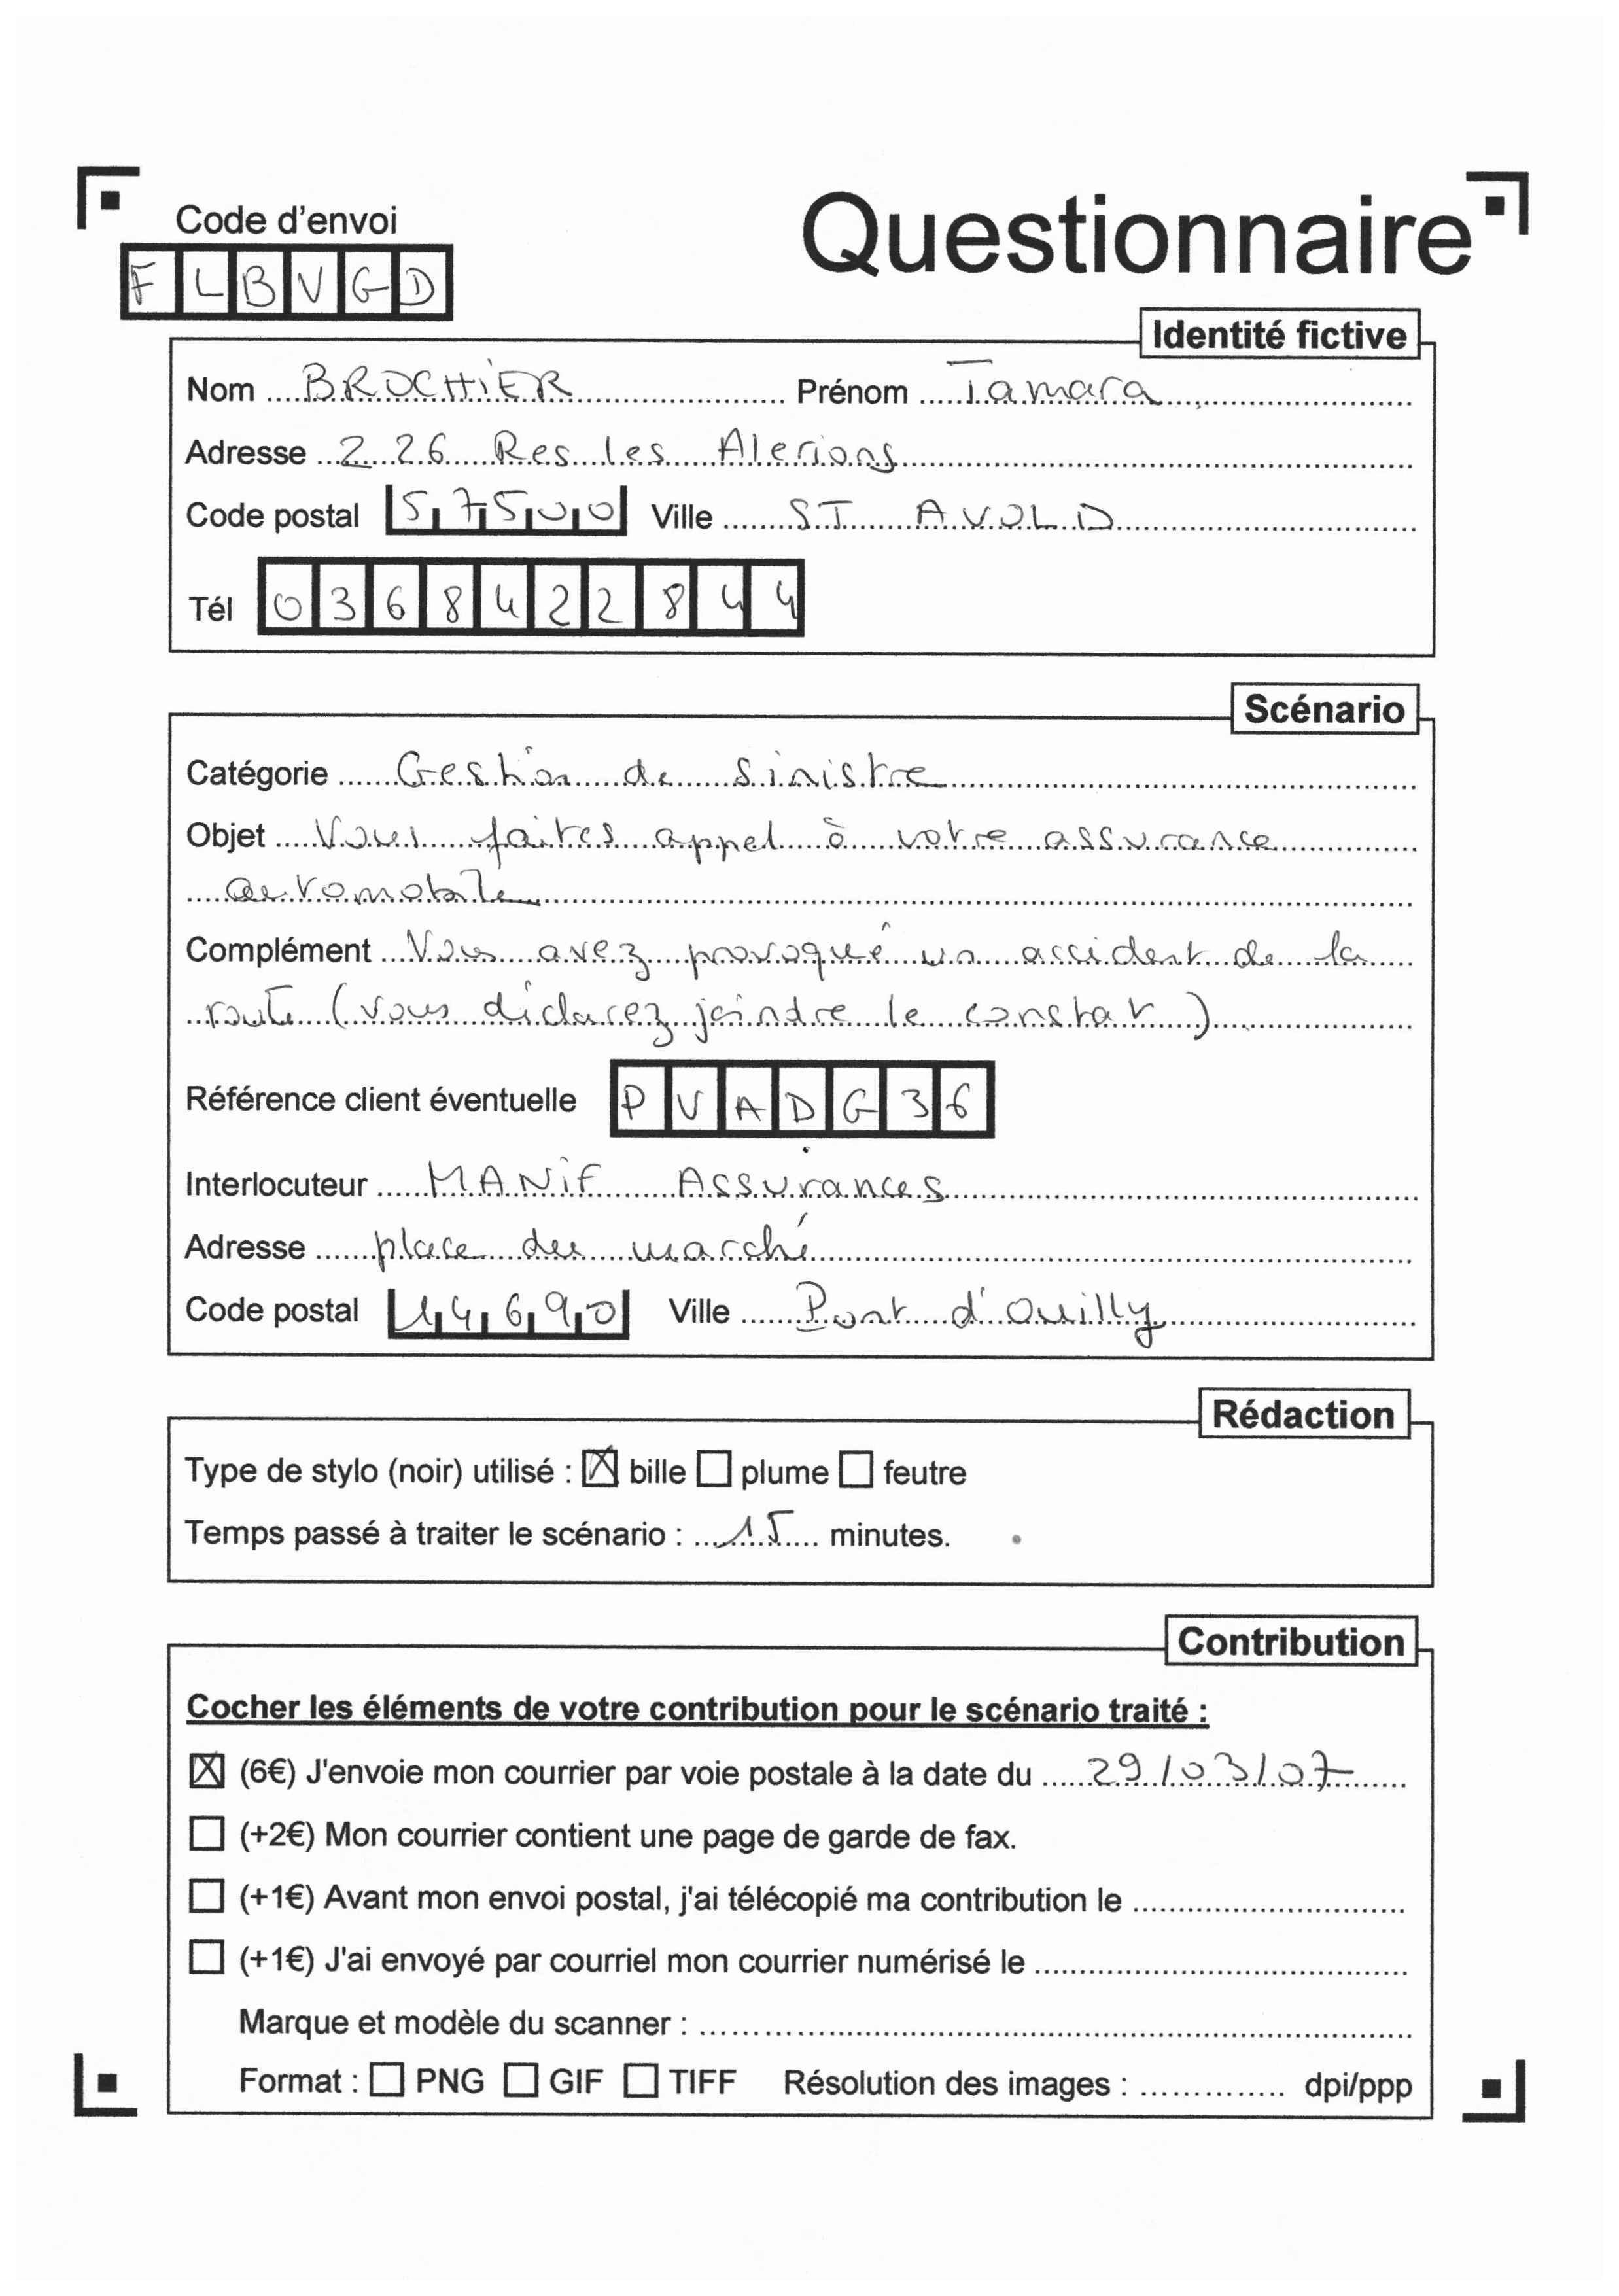 Code d'envoi
Questionnaire
F L B V G D
Identité fictive
Nom BROCHIER Prénom Tamara
Adresse 226 Res les Alerions
Code postal 57500 Ville ST AVOLD
Tél 0368422844
Scénario
Catégorie Gestion de sinistre
Objet Vous faites appel à votre assurance
automobile
Complément Vous avez provoqué un accident de la
route (vous déclarez joindre le constat)
Référence client éventuelle PVADG36
Interlocuteur MANIF Assurances
Adresse place du marché
Code postal 14690 Ville Pont d'Ouilly
Rédaction
Type de stylo (noir) utilisé : ☒ bille ☐ plume ☐ feutre
Temps passé à traiter le scénario : 15 minutes.
Contribution
Cocher les éléments de votre contribution pour le scénario traité :
☒ (6€) J'envoie mon courrier par voie postale à la date du 29/03/07
☐ (+2€) Mon courrier contient une page de garde de fax.
☐ (+1€) Avant mon envoi postal, j'ai télécopié ma contribution le
☐ (+1€) J'ai envoyé par courriel mon courrier numérisé le
Marque et modèle du scanner :
Format : ☐ PNG ☐ GIF ☐ TIFF Résolution des images : dpi/ppp